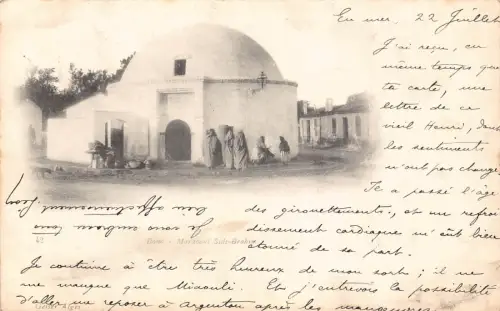 En mer, 22 Juillet
J'ai reçu, en
même temps que
ta carte, une
lettre de ce
vieil Henri, dont
les sentiments
n'ont pas changé
Tu a passé l'âge
des girouettements, et un refroi
dissement cardiaque m'eût bien
étonné de sa part.
Je continue à être très heureux de mon sort ; il ne
me manque que Miaouli. Et j'entrevois la possibilité
d'aller me reposer à Argenton après les manœuvres.
Je vous embrasse tous
bien affectueusement.
42
Bone - Marabout Sidi-Brahim
Geiser Alger